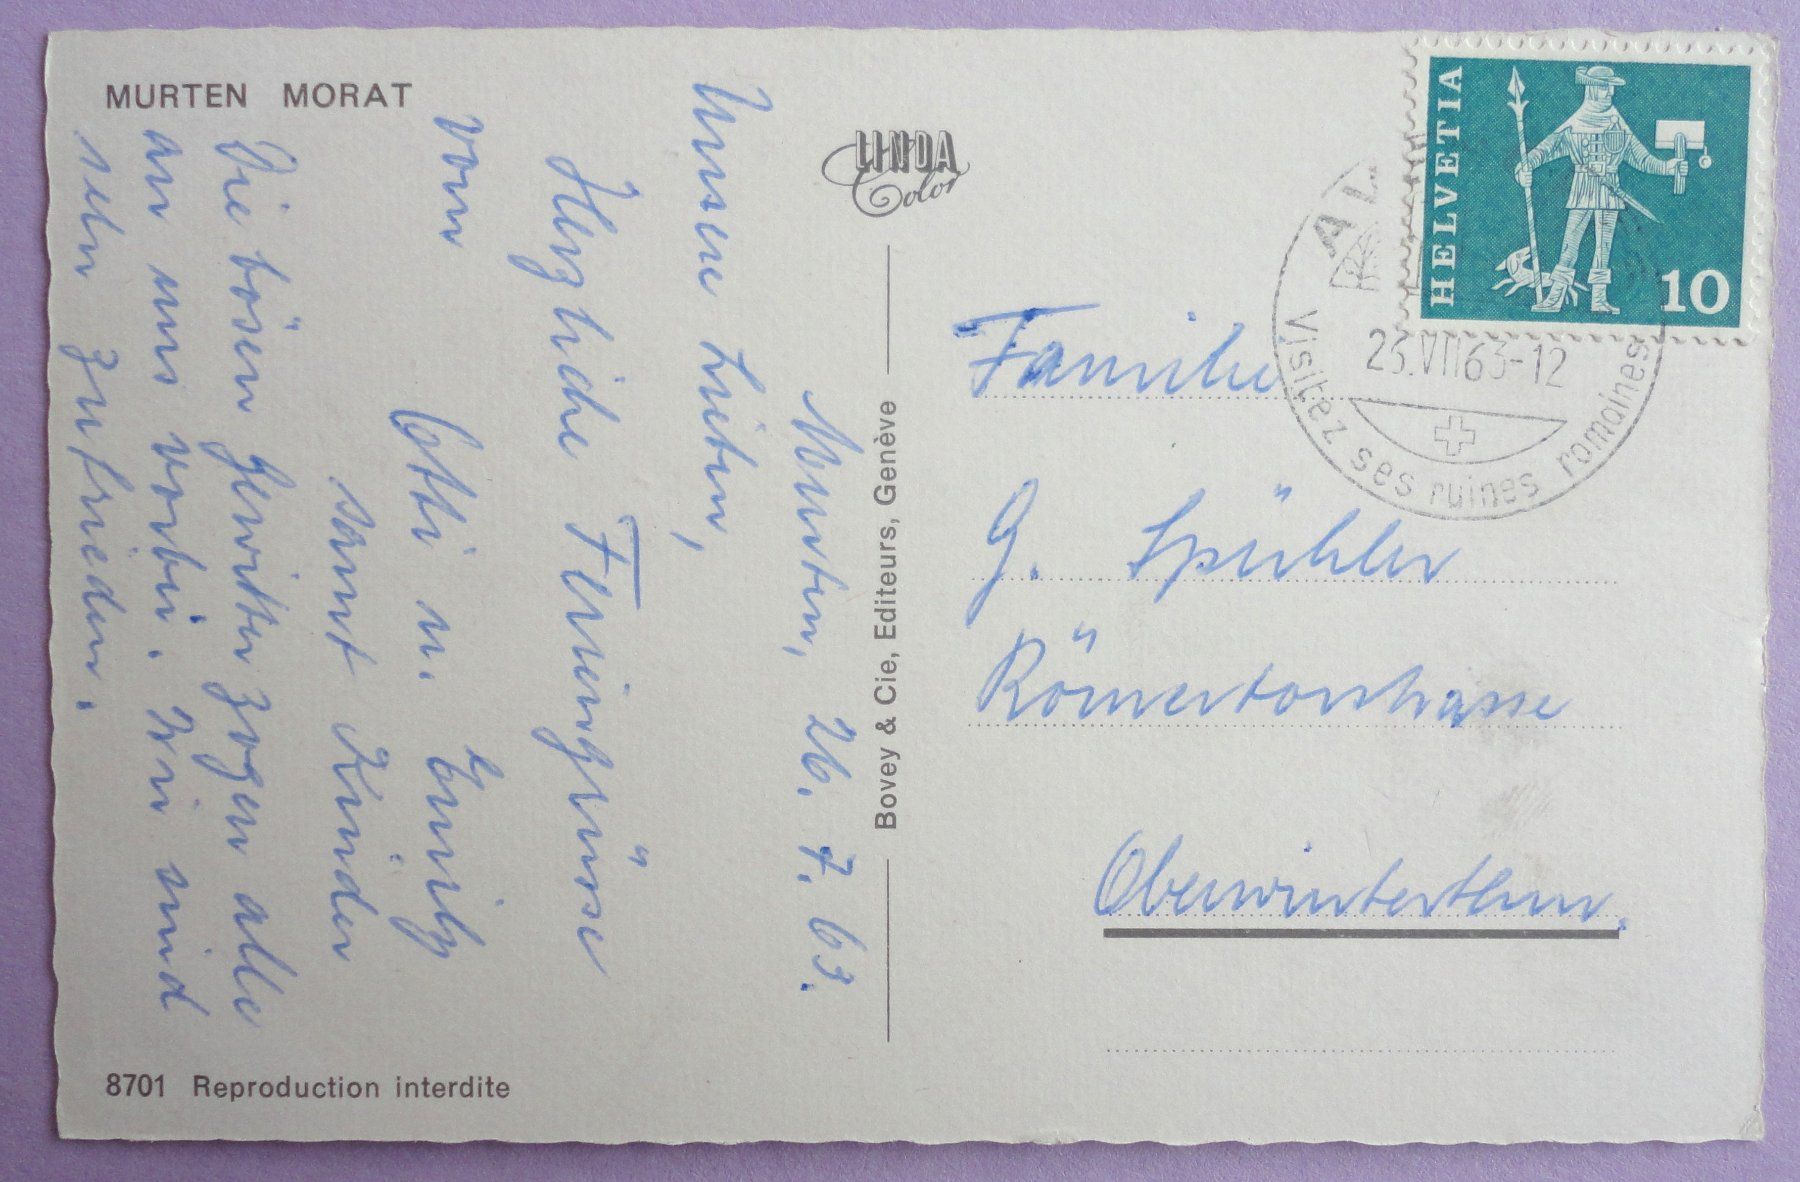 MURTEN MORAT
LINDA
Color
HELVETIA
10
23.VII63-12
Visitez ses ruines romaines
Murten, 26. 7. 63.
Unsere Lieben,
Herzliche Feriengrüsse
vom
Otti u. Emily
samt Kinder
Die bösen Gewitter zogen alle
an uns vorbei. Wir sind
sehr zufrieden.
Bovey & Cie, Editeurs, Genève
Familie
G. Spühler
Römertorstrasse
Oberwinterthur.
8701 Reproduction interdite